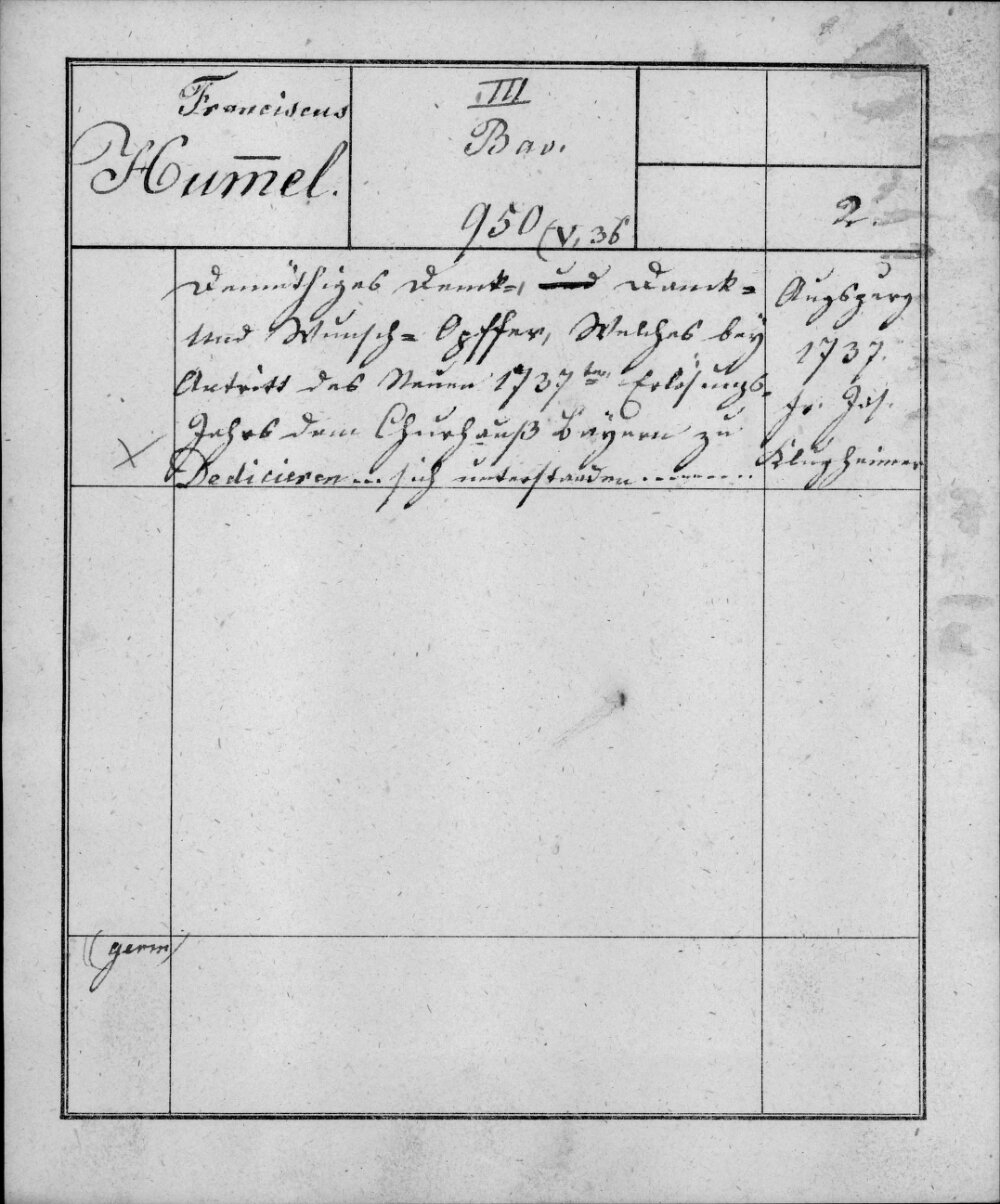 Franciscus
Hum̅el.
III
Bav.
950 (V, 36
2.
Demüthiges Denk=, und Danck=
und Wunsch= Opffer, Welches bey
Antritt des Neuen 1737ten Erlösungs-
Jahrs dem Churhauß Bäyern zu
Dedicieren ... sich unterstanden ........
Augsperg
1737.
Fr. Jos.
Klugheimer
(germ)